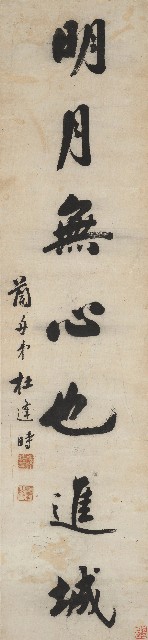 明月無心也進城
蘭舟弟杜逢時